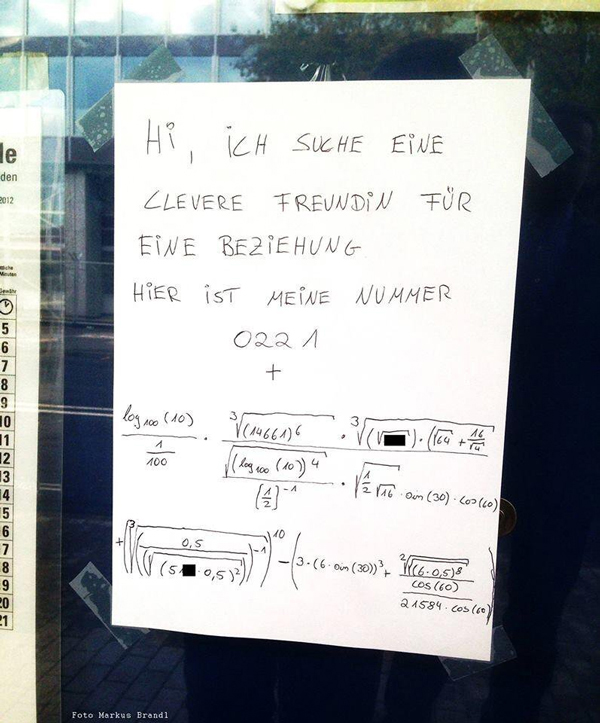 Hi, ICH SUCHE EINE
CLEVERE FREUNDIN FÜR
EINE BEZIEHUNG
HIER IST MEINE NUMMER
0221
+
log₁₀₀(10) / (1/100) · (∛(14661)⁶ · ∛((√) · (√64 + 16/√4))) / (√(log₁₀₀(10))⁴ / [1/2]⁻¹ · √(1/2 √16) · sin(30) · cos(60))
+ (∛((0,5 / (√(51 · 0,5)²))⁻¹))¹⁰ − (3 · (6 · sin(30))³ + ²√((6 · 0,5)⁸) / cos(60) / 21584 · cos(60))
le
den
2012
Minuten
Gewähr
5
6
7
8
9
10
11
12
13
14
15
16
17
18
19
20
21
Foto Markus Brandl